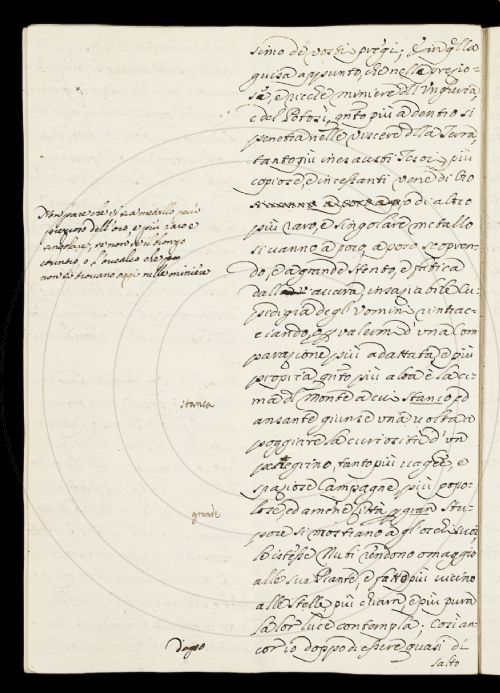 simo de vostri pregi; E in q̃lla
guisa appunto, che nelle prezio-
se, e ricche miniere dll' Ungheria,
e del Potosi, qñto più a dentro si
penetra nelle viscere dlla Terra
tanto più inesausti Tesori, più
copiose, ed incessanti vene di
o di altro
più raro, e singolare metallo
si vanno a poco, a poco scopren-
do, e a grande stento, e fatica
dalla avara, insaziabile Cu-
pidigia degli Uomini rintrac-
ciando, valermi d'una com
parazione più adattata, e più
propria qñto più alta è la ci-
ma dl Monte a cui stanco, ed
ansante giunse una volta a
poggiare la curiosità d'un
pellegrino, tanto più vaghe, e
spaziose Campagne, più popo-
lose, ed amene Città gran stu-
pore si mostrano a gl'occhi suoi
le istesse Nubi rendono omaggio
alle sue Piante, e fatto più vicino
alle stelle più chiara, e più pura
la lor luce contempla. Così an-
cor io doppo d'essere quasi di
salto
Non pare che vi sia metallo più
prezioso dell'oro, e più raro e
singolare, se non è il bronzo
corintio, o l'oricalco che
non si trovano oggi nelle miniere
stanca
grande
Dopo